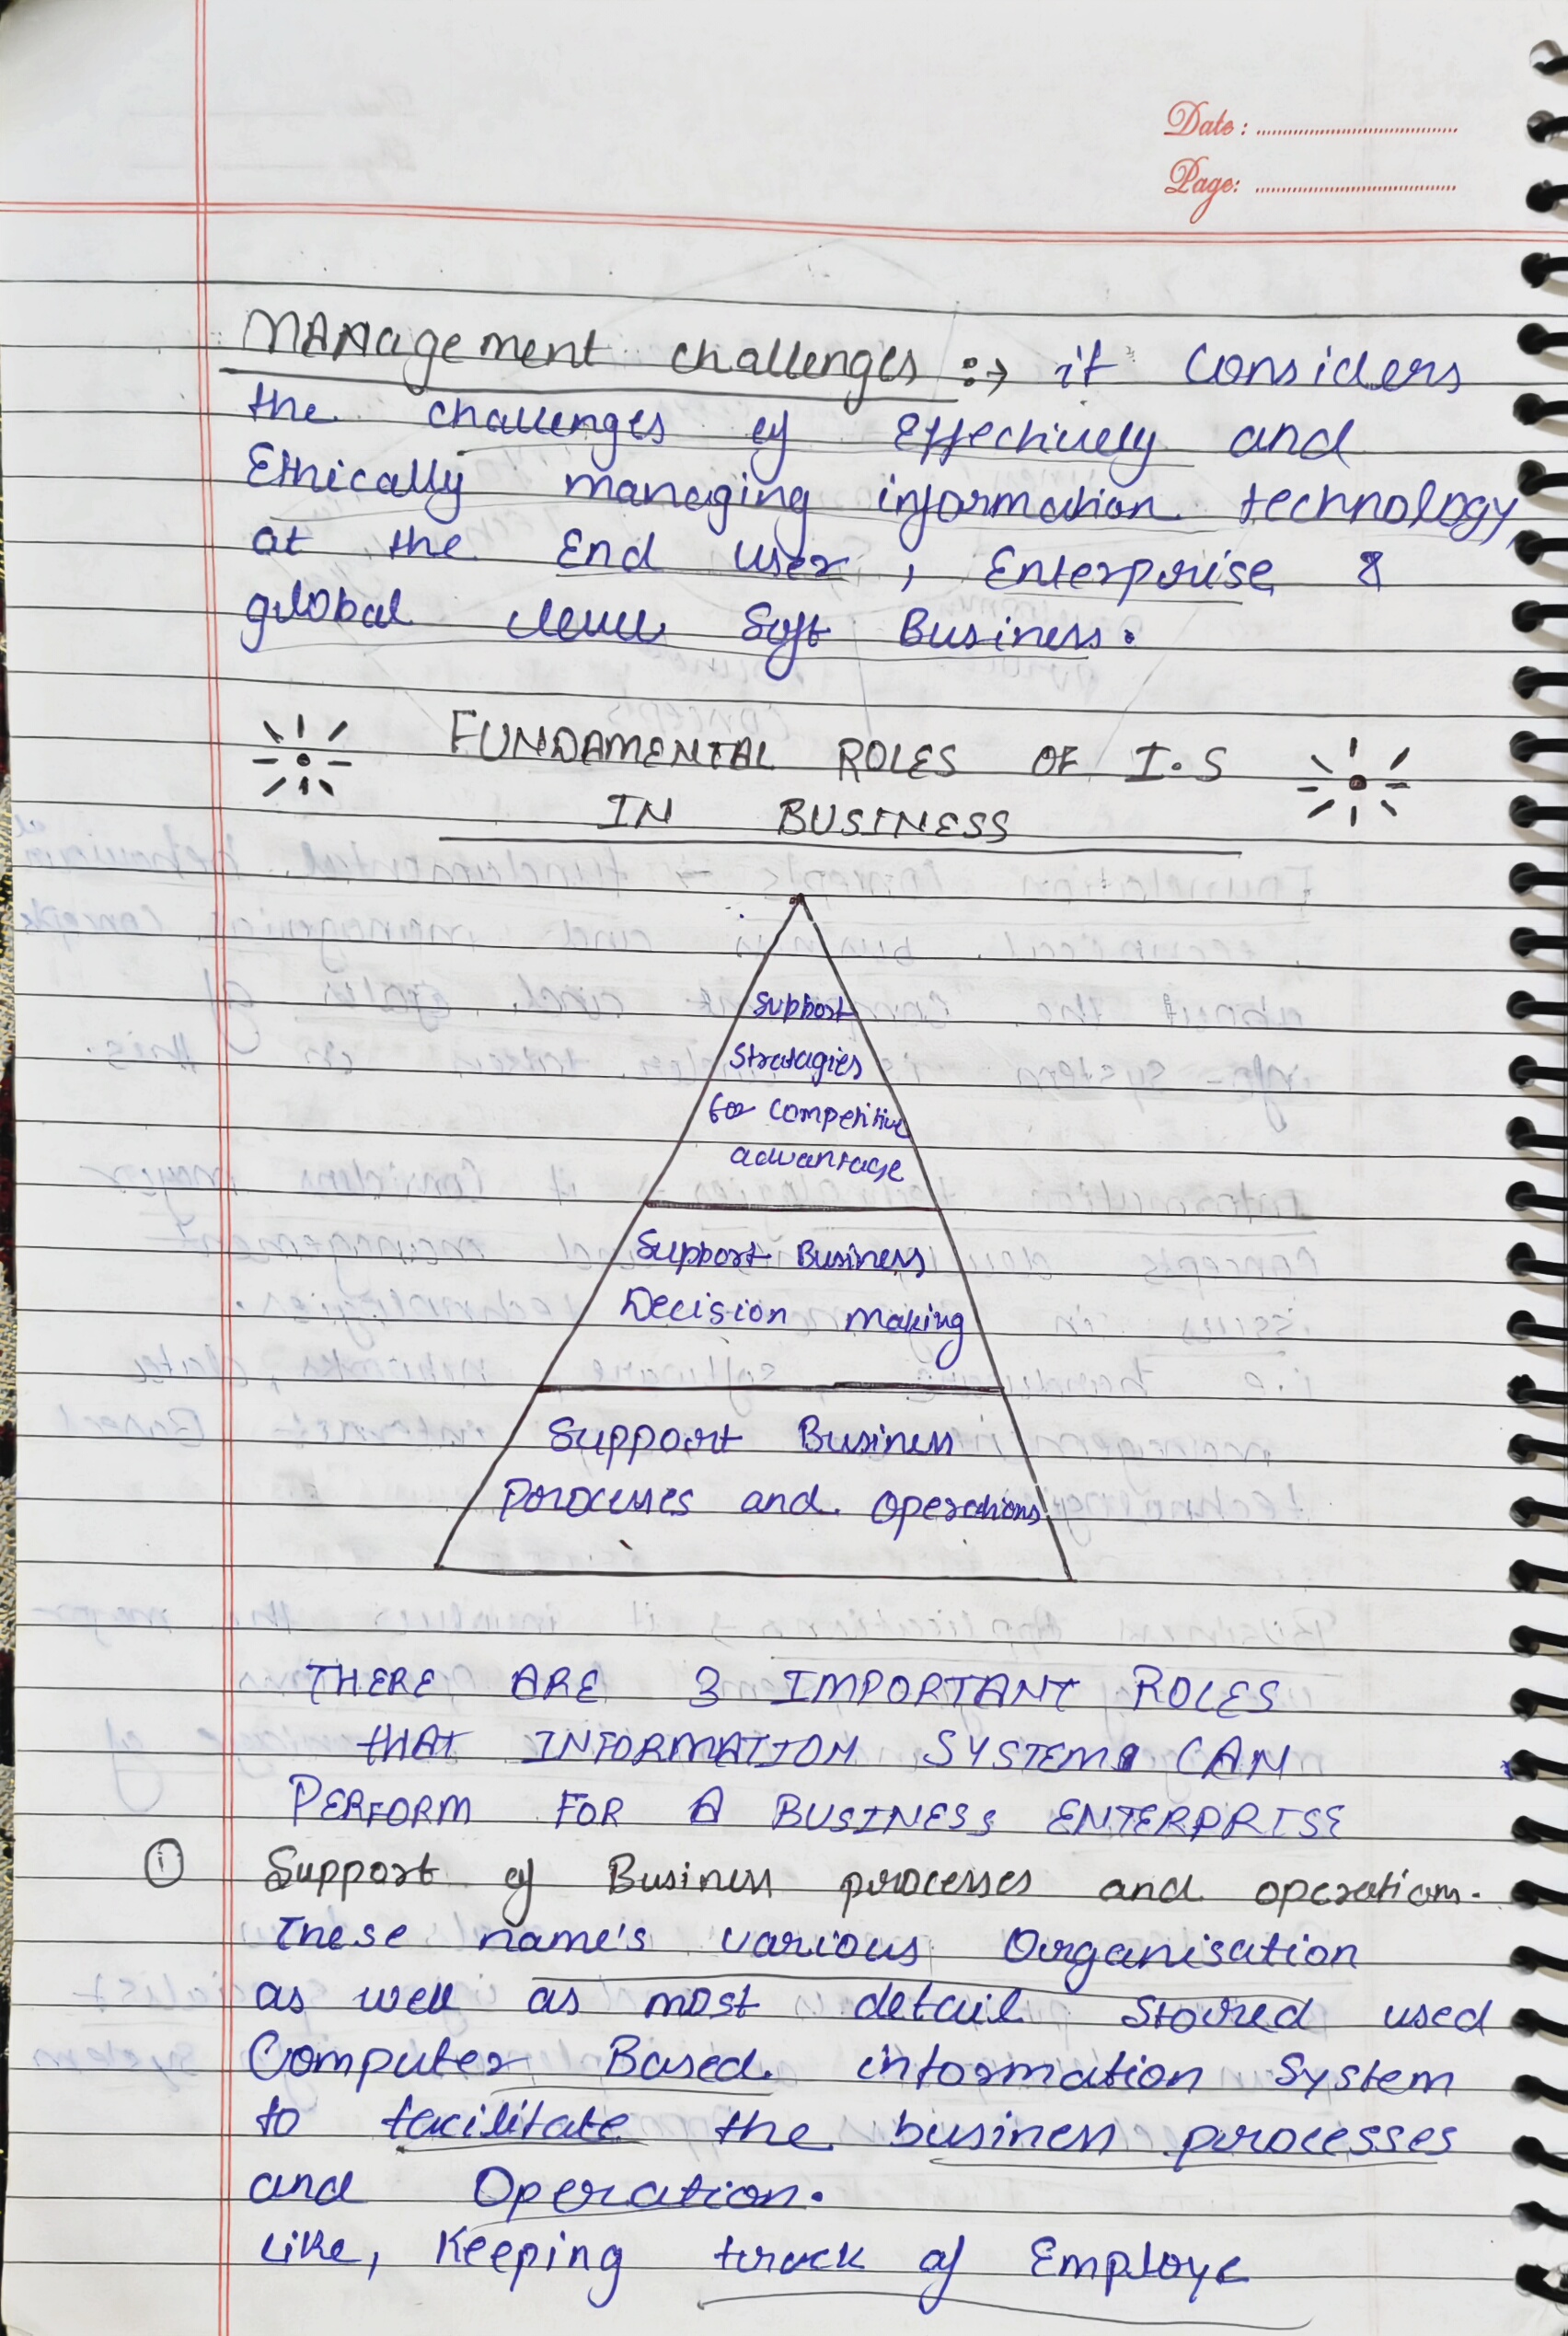 Date : ..................
Page: ..................
MANAgement challenges :→ it considers
the challenges of Effectively and
Ethically managing information technology,
at the End user, Enterprise &
global level Soft Business.
FUNDAMENTAL ROLES OF I.S
IN BUSINESS
Support
Stratagies
for competitive
advantage
Support Business
Decision making
Support Business
Processes and Operations
THERE ARE 3 IMPORTANT ROLES
tHAT INFORMATION SYSTEM CAN
PERFORM FOR A BUSINESS ENTERPRISE
① Support of Business processes and operations.
These name's various Organisation
as well as most detail stored used
Computer Based information System
to facilitate the business processes
and Operation.
Like, Keeping track of Employe